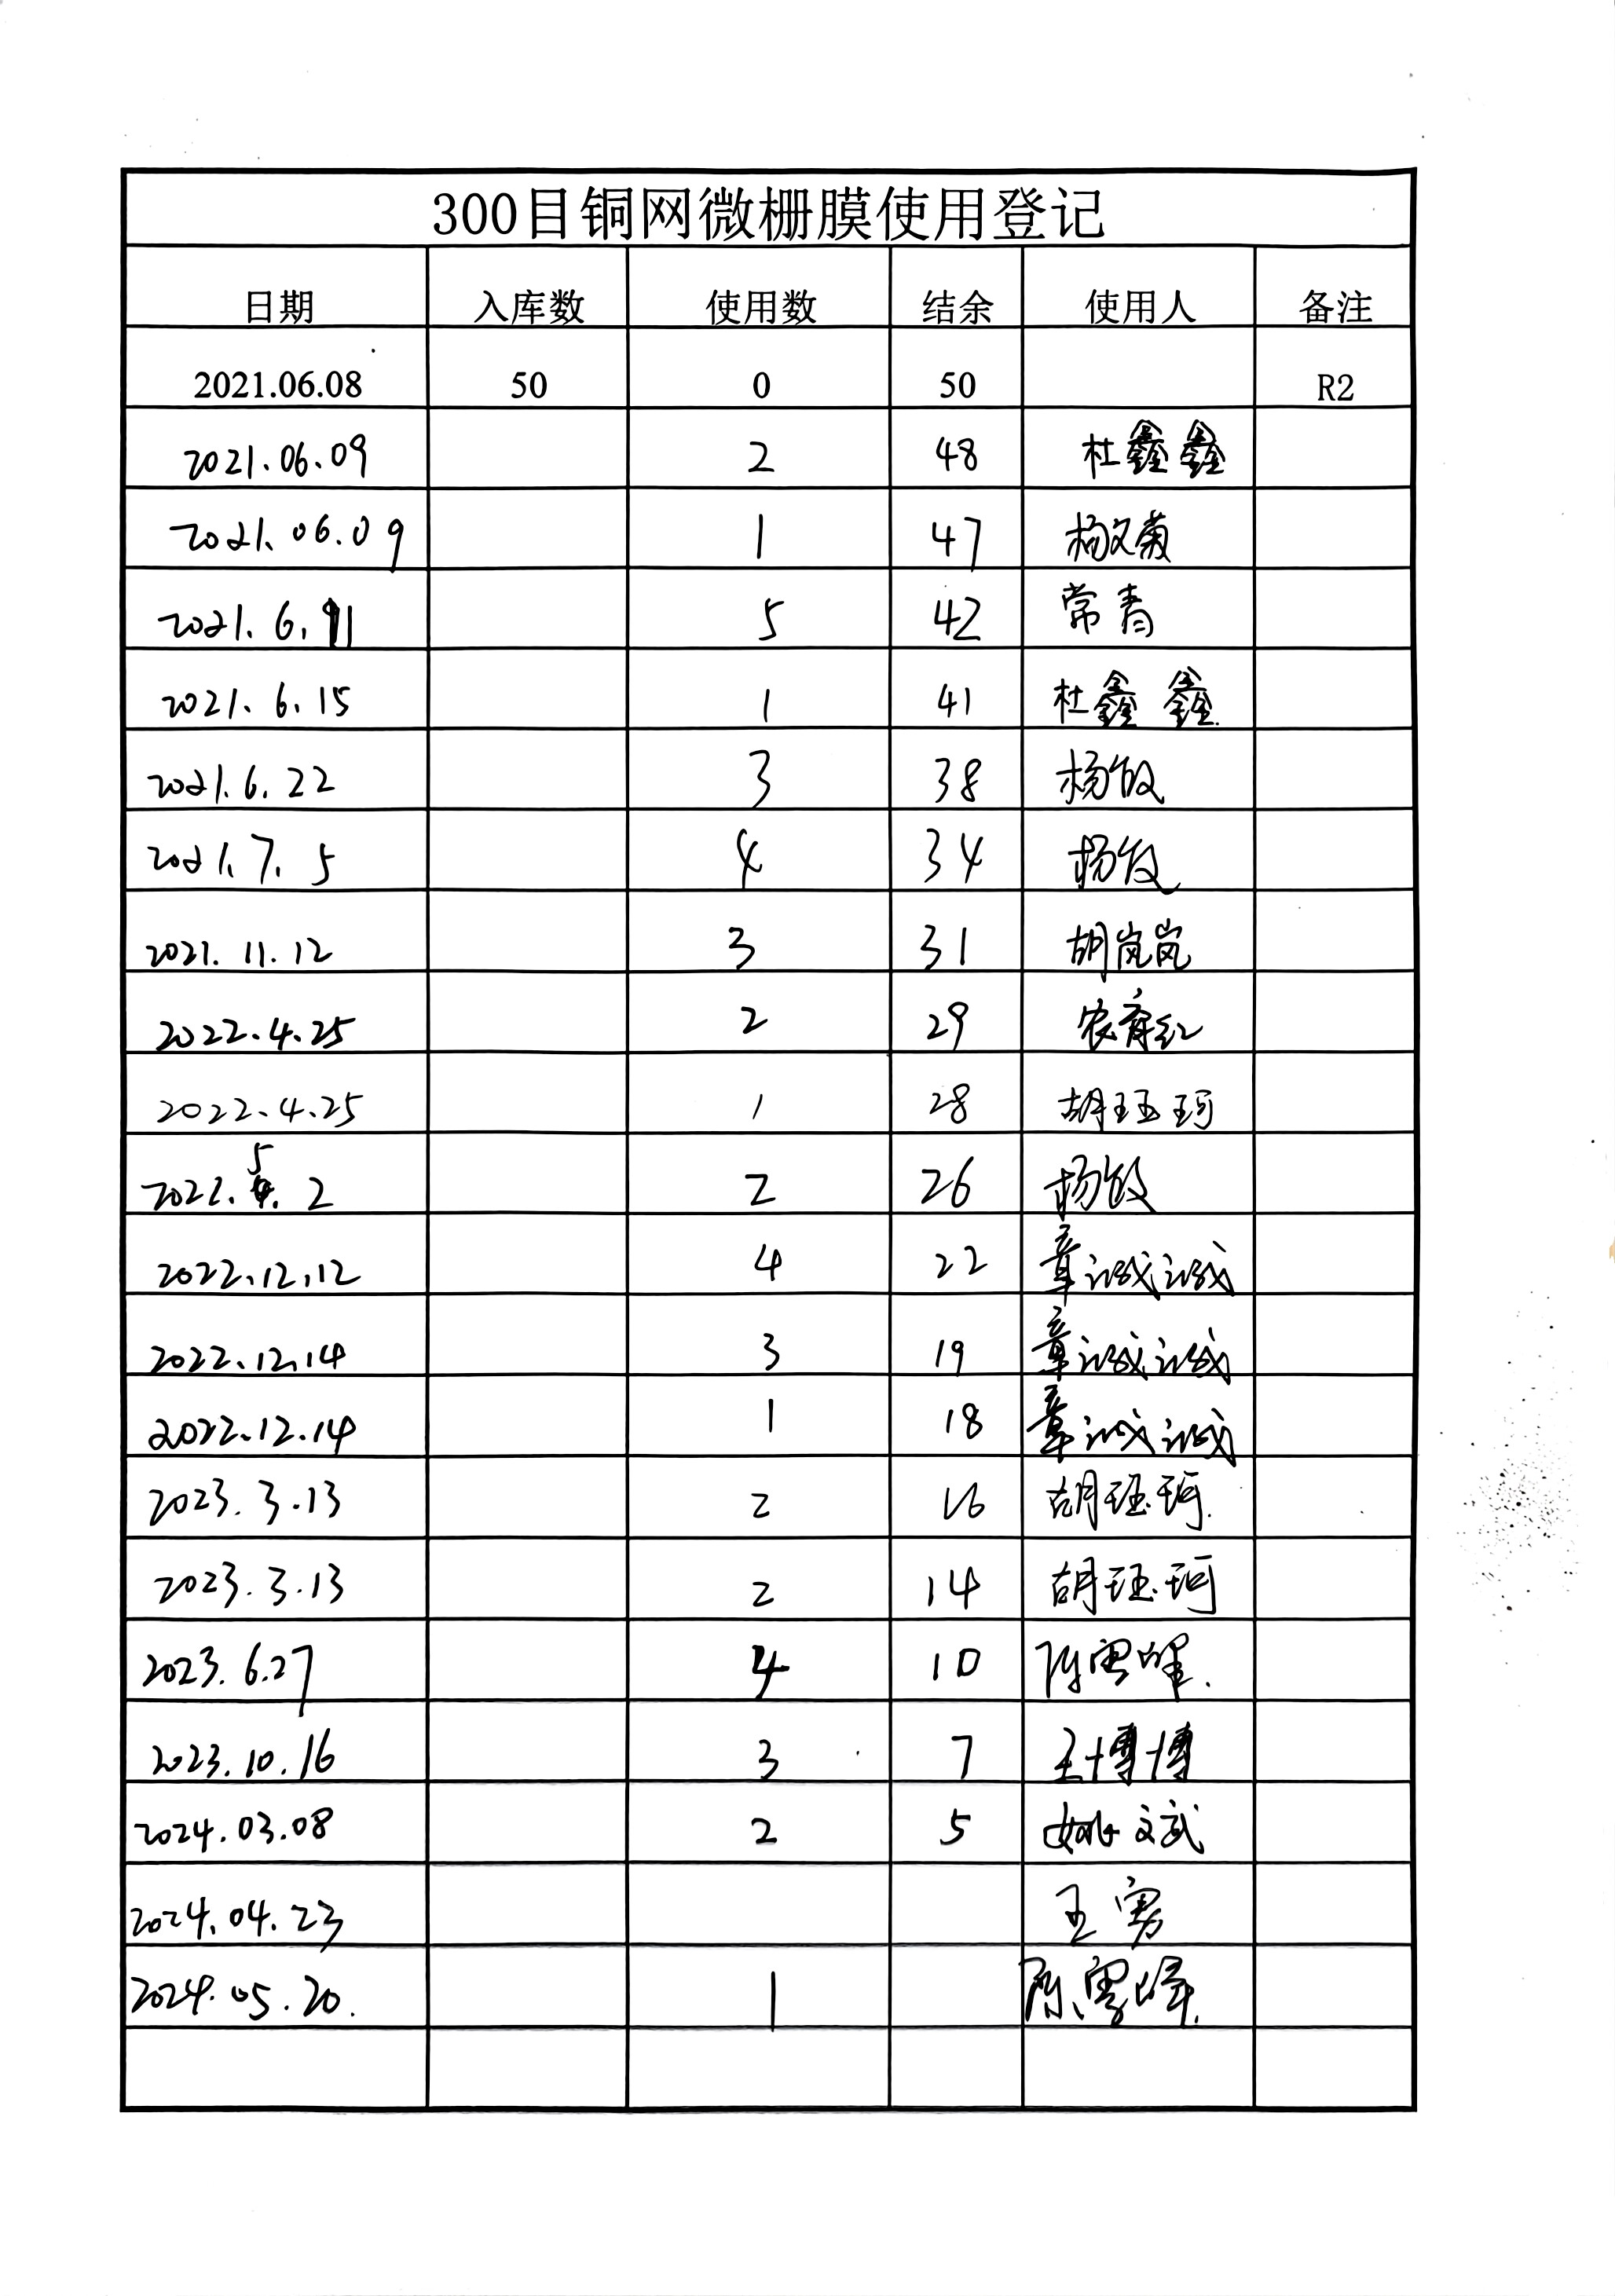 300目铜网微栅膜使用登记
日期 入库数 使用数 结余 使用人 备注
2021.06.08 50 0 50 R2
2021.06.09 2 48 杜鑫鑫
2021.06.09 1 47 杨文菊
2021.6.11 5 42 常青
2021.6.15 1 41 杜鑫鑫
2021.6.22 3 38 杨敏
2021.7.5 4 34 杨敏
2021.11.12 3 31 胡岚岚
2022.4.25 2 29
2022.4.25 1 28 胡珏珂
2022.5.2 2 26 杨敏
2022.12.12 4 22 章诚诚
2022.12.14 3 19 章诚诚
2022.12.14 1 18 章诚诚
2023.3.13 2 16 胡珏珂
2023.3.13 2 14 胡珏珂
2023.6.27 4 10
2023.10.16 3 7 王博博
2024.03.08 2 5 姚文武
2024.04.23 王勇
2024.05.20. 1